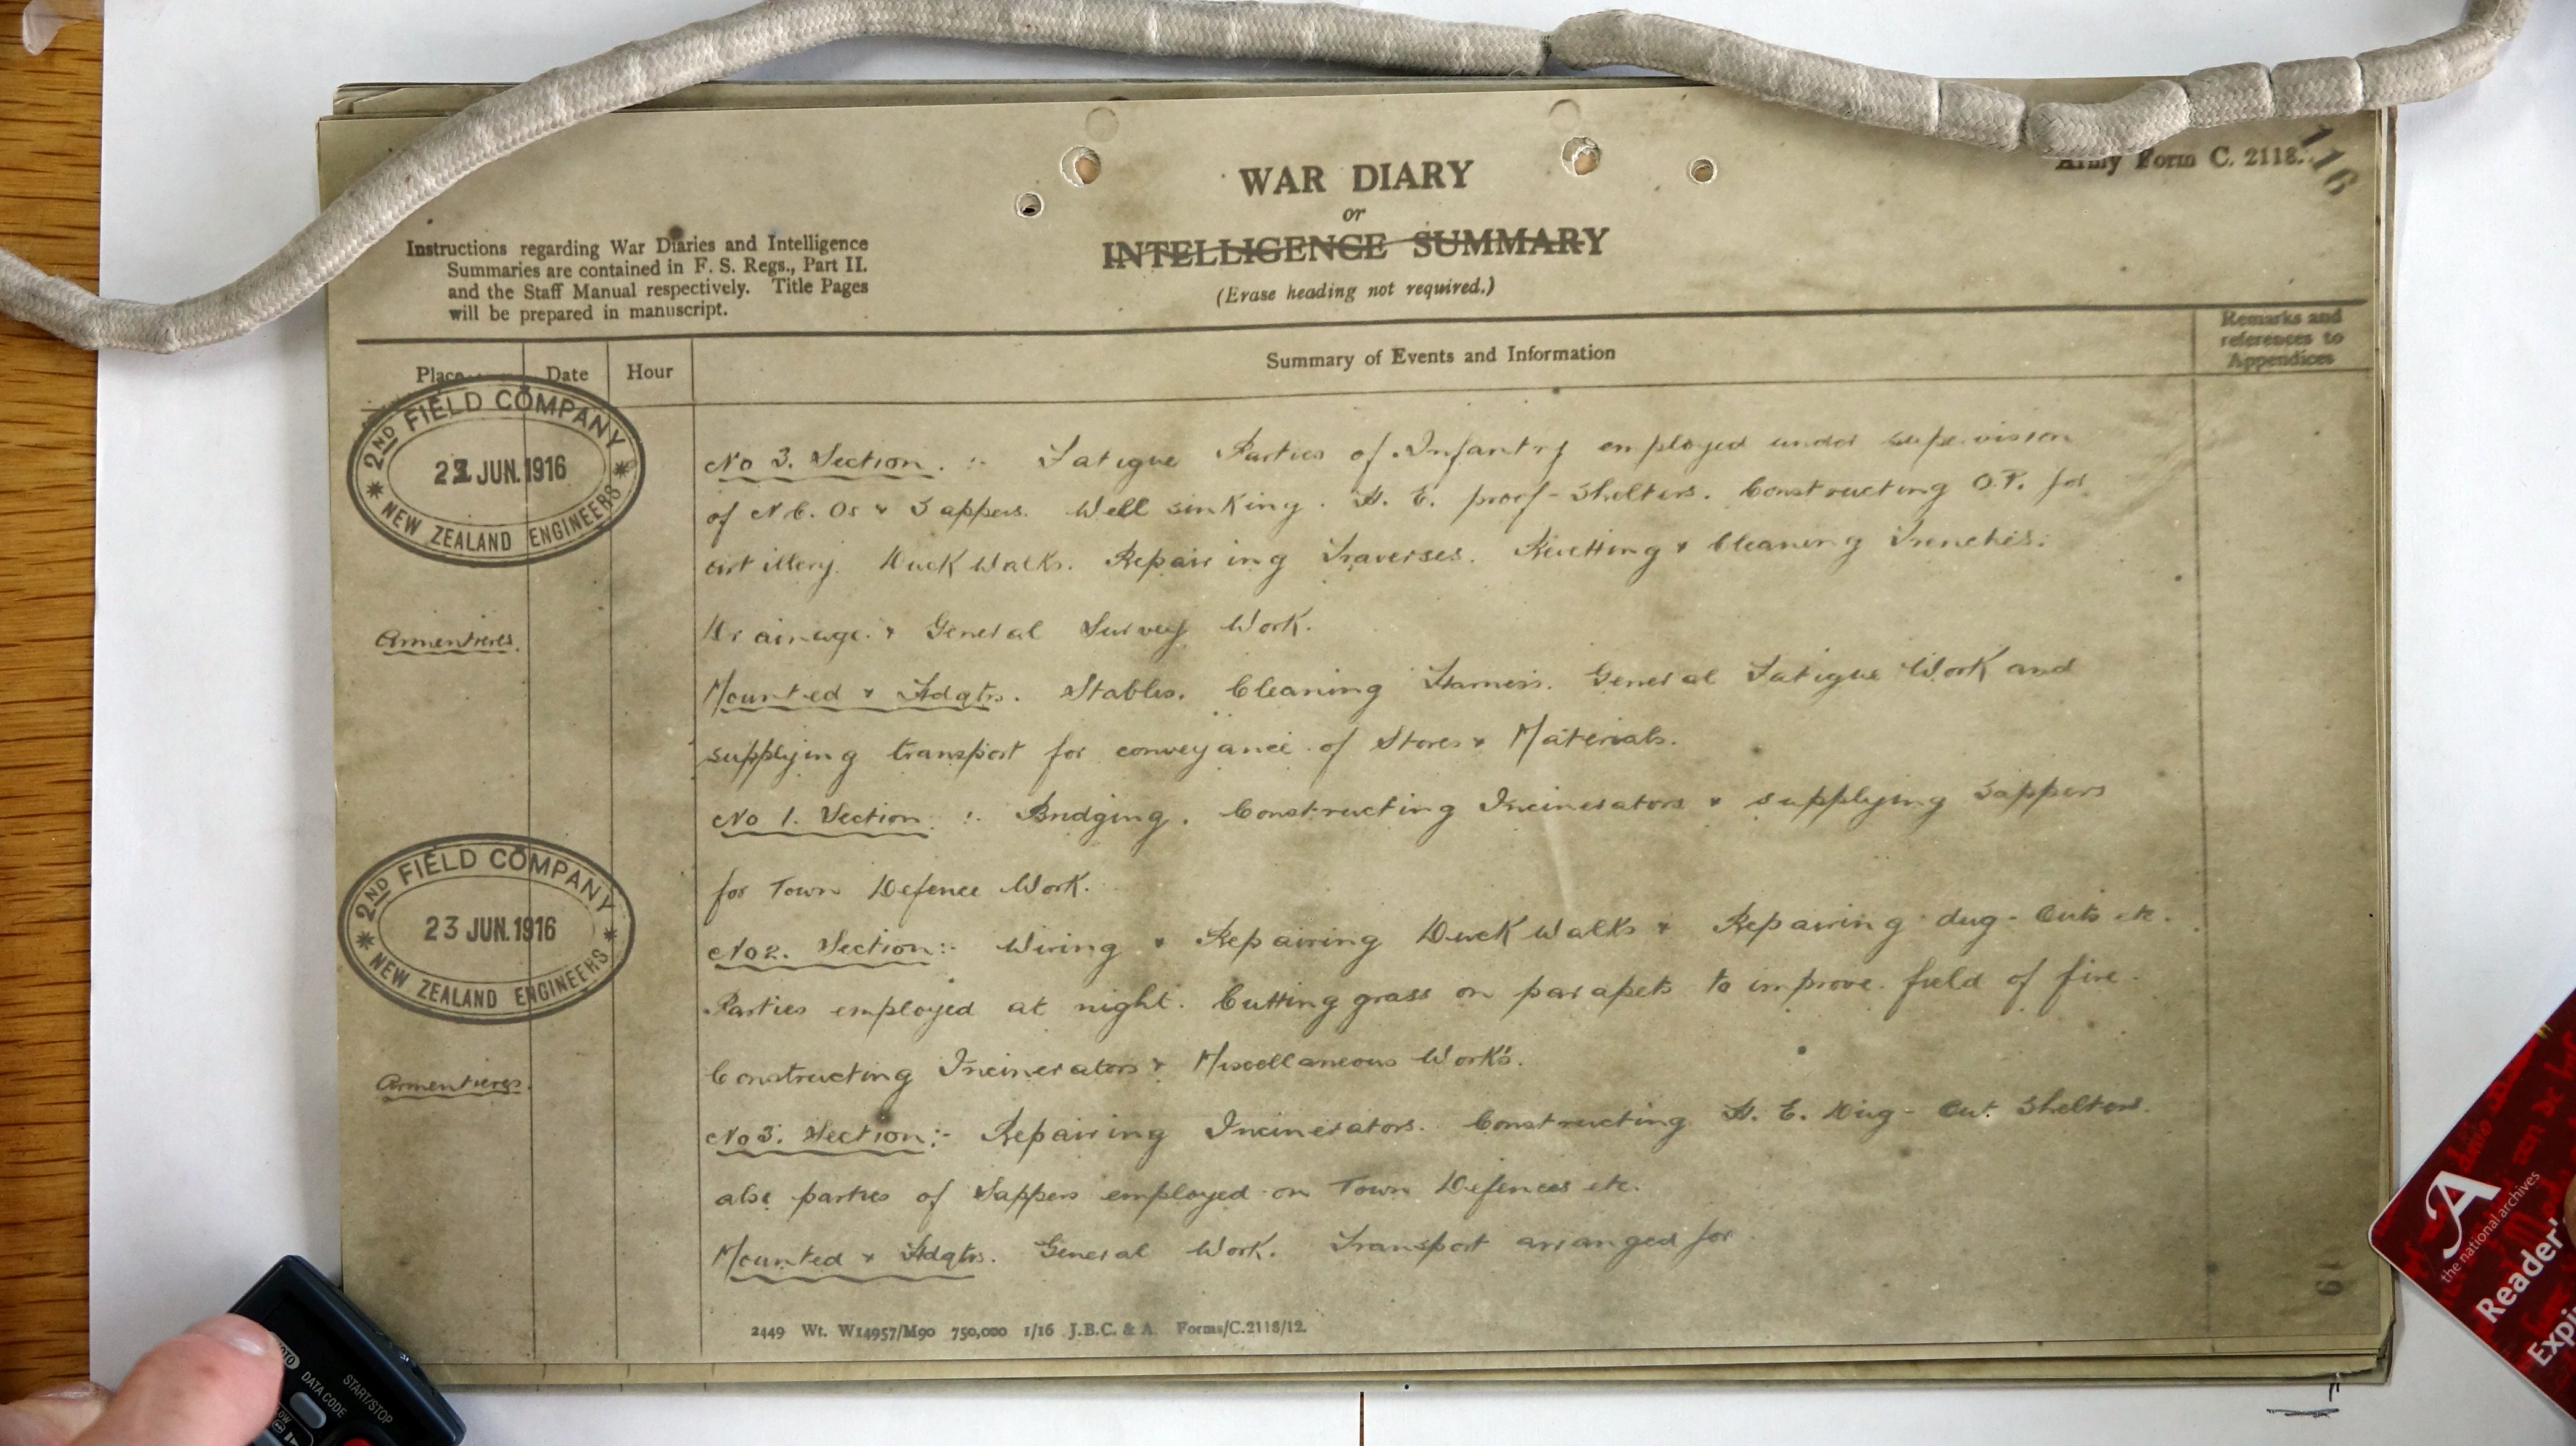 116
Army Form C. 2118.
WAR DIARY
or
INTELLIGENCE SUMMARY
(Erase heading not required.)
Instructions regarding War Diaries and Intelligence
Summaries are contained in F. S. Regs., Part II.
and the Staff Manual respectively. Title Pages
will be prepared in manuscript.
Place Date Hour Summary of Events and Information Remarks and references to Appendices
2ND FIELD COMPANY
22 JUN. 1916
NEW ZEALAND ENGINEERS
No 3. Section. :- Fatigue Parties of Infantry employed under supervision
of N.C.Os & Sappers. Well sinking. H. E. proof-Shelters. Constructing O.P. for
artillery. Duck Walks. Repairing Traverses. Rivetting & Cleaning Trenches.
Armentieres.
Drainage. & General Survey Work.
Mounted & Hdqtrs. Stables. Cleaning Harness. General Fatigue Work and
supplying transport for conveyance of Stores & Materials.
No 1. Section :- Bridging. Constructing Incinerators & supplying Sappers
for Town Defence Work.
2ND FIELD COMPANY
23 JUN. 1916
NEW ZEALAND ENGINEERS
No 2. Section:- Wiring & Repairing Duck Walks & Repairing dug-Outs etc.
Parties employed at night. Cutting grass on parapets to improve field of fire.
Constructing Incinerators & Miscellaneous Works.
Armentieres.
No 3. Section:- Repairing Incinerators. Constructing H. E. Dug-Out Shelters.
also parties of Sappers employed on Town Defences etc.
Mounted & Hdqtrs. General Work. Transport arranged for
2449 Wt. W14957/M90 750,000 1/16 J.B.C. & A. Forms/C.2118/12.
19
A
the national archives
Reader'
Expi
DATA CODE
START/STOP